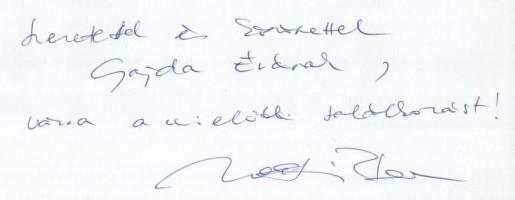 Szeretettel és szeretettel
Gajda Évának,
várva a mielőbbi találkozást!